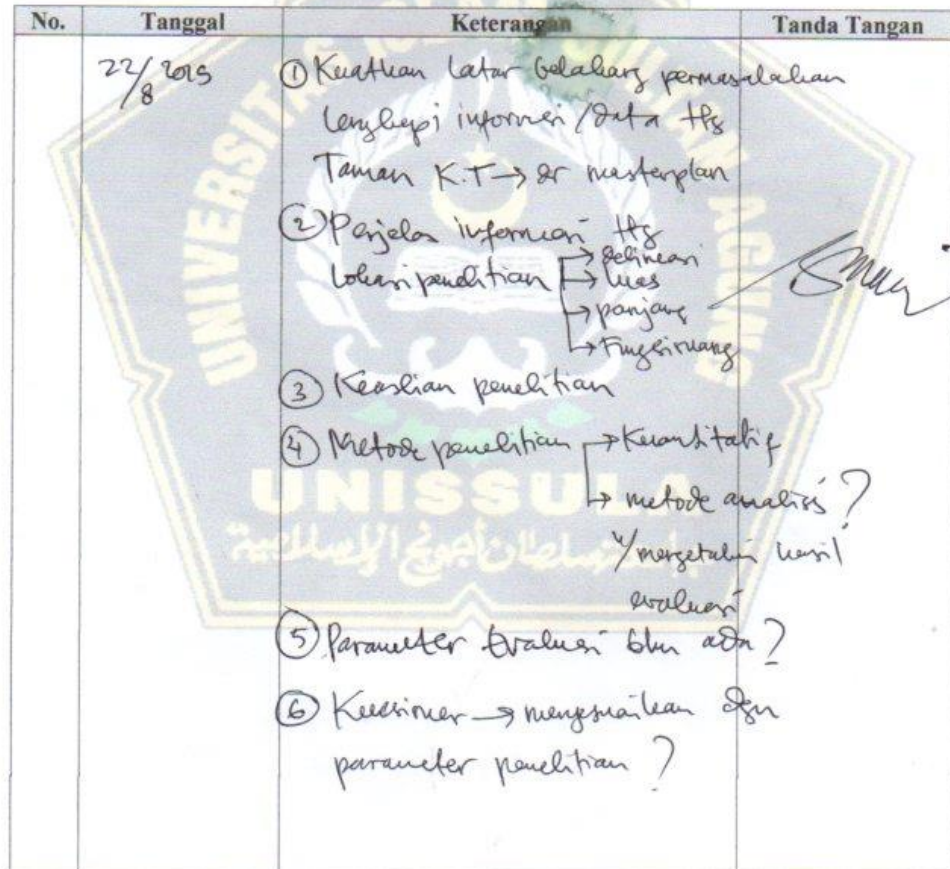 No. Tanggal Keterangan Tanda Tangan
22/8 2025 ① Kuatkan latar belakang permasalahan
lengkapi informasi/data ttg
Taman K.T → dr masterplan
② Perjelas informasi ttg
Lokasi penelitian → delineasi
→ luas
→ panjang
→ Fungsi ruang
③ Keaslian penelitian
④ Metode penelitian → Kuantitatif
→ metode analisis ?
u/ mengetahui hasil
evaluasi
⑤ Parameter Evaluasi blm ada ?
⑥ Kuesioner → menyesuaikan dgn
parameter penelitian ?
UNIVERSITAS ISLAM SULTAN AGUNG
UNISSULA
جامعة سلطان أجونج الإسلامية